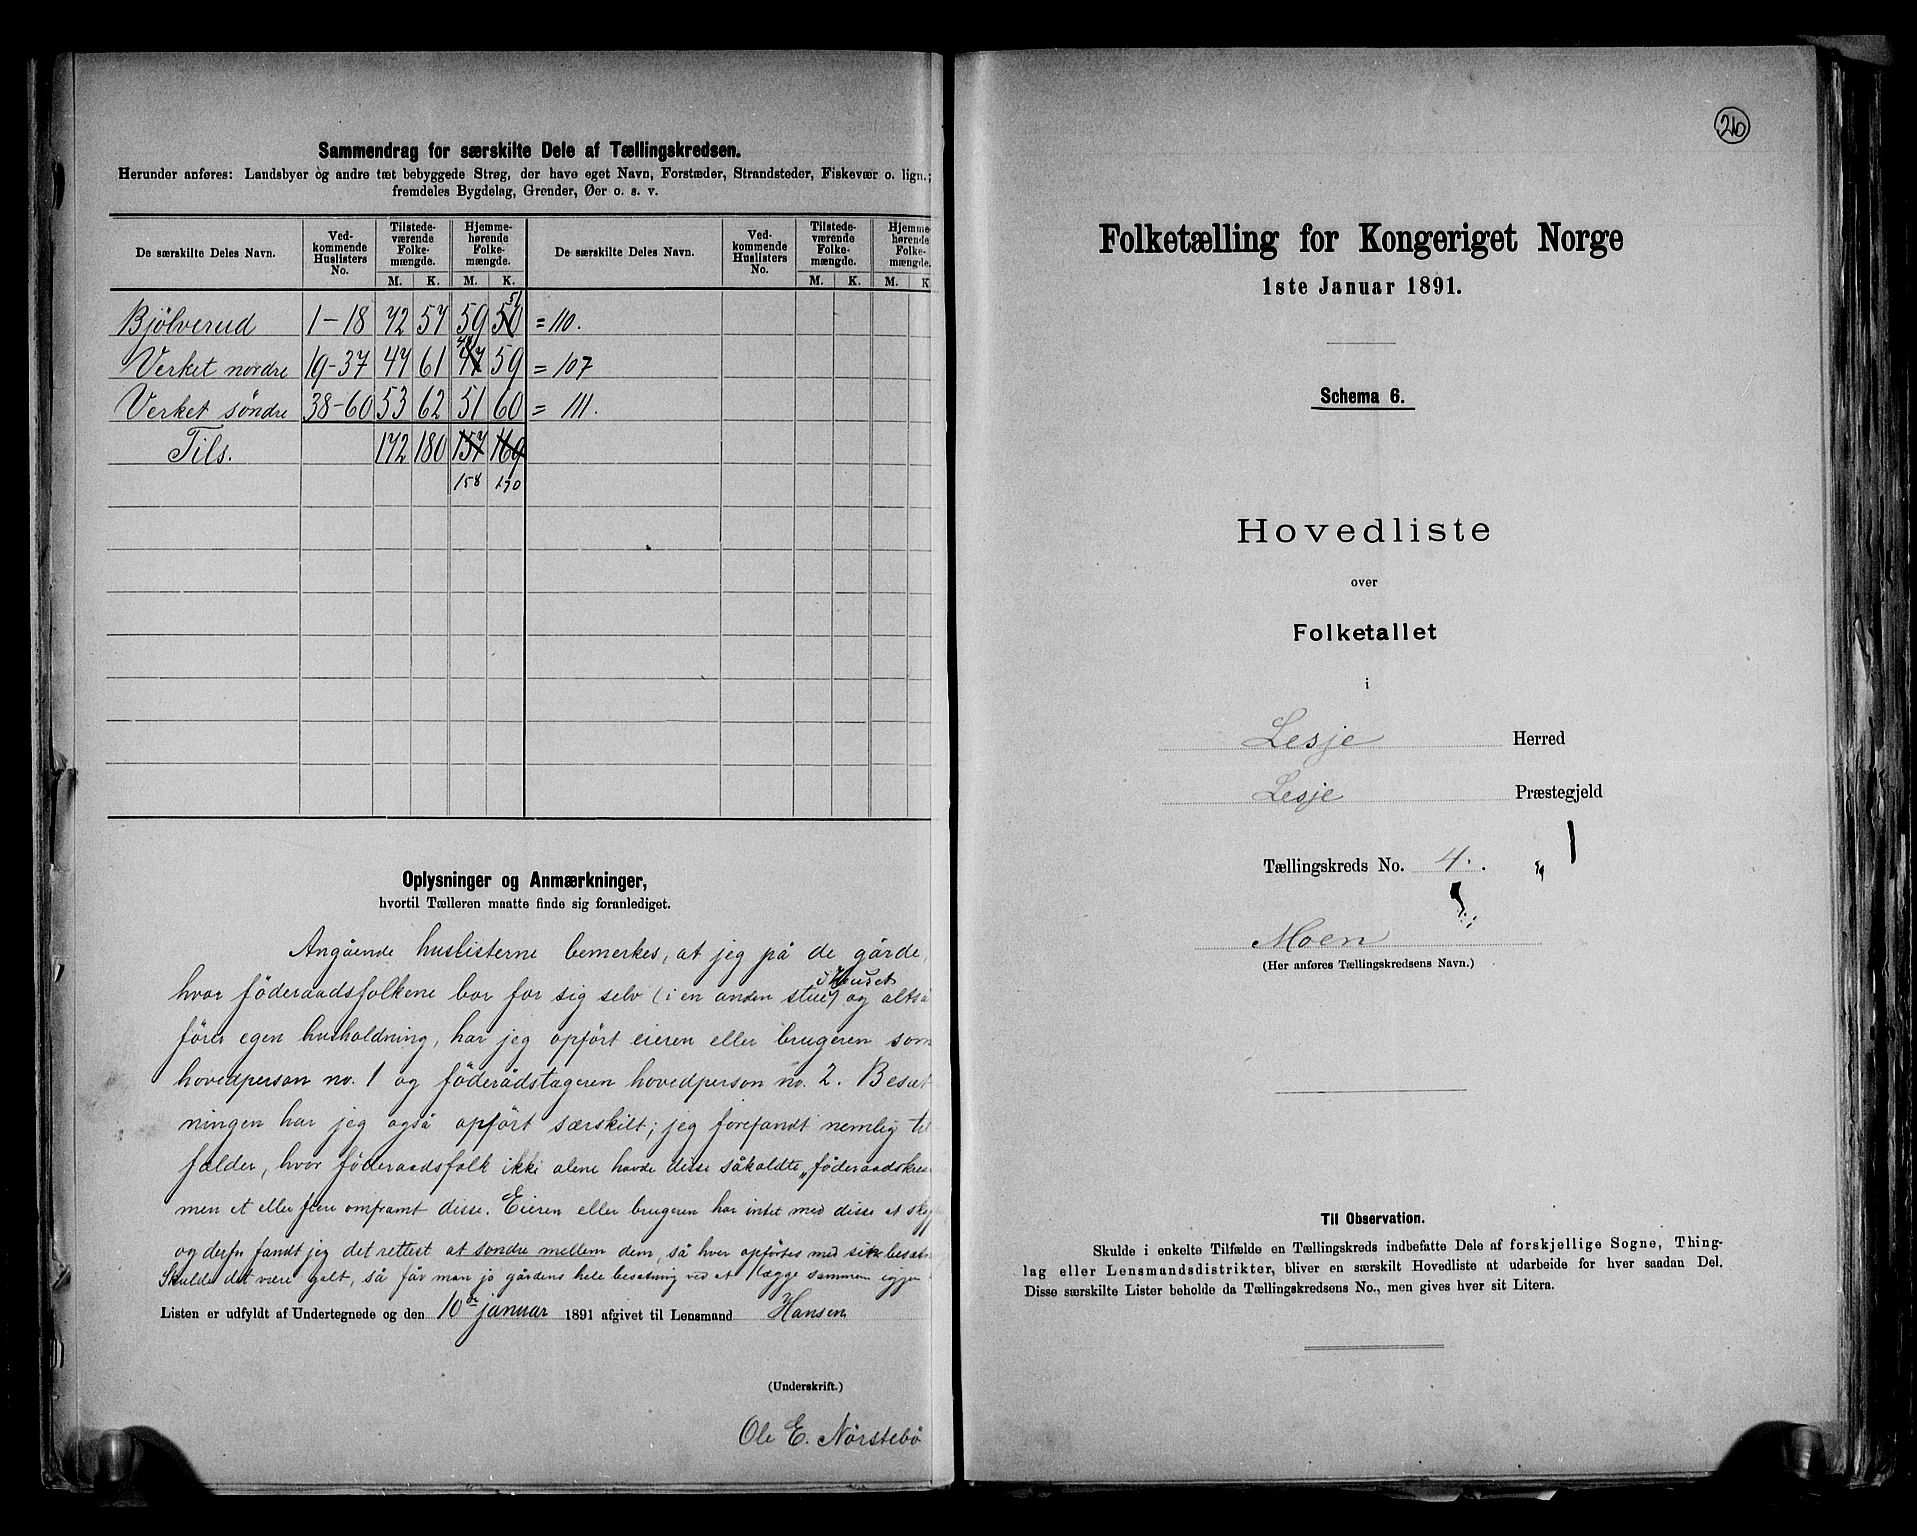 Sammendrag for særskilte Dele af Tællingskredsen.
Herunder anføres: Landsbyer og andre tæt bebyggede Strøg, der have eget Navn, Forstæder, Strandsteder, Fiskevær o. lign.;
fremdeles Bygdelag, Grender, Øer o. s. v.
De særskilte Deles Navn. Ved-kommende Huslisters No. Tilstede-værende Folke-mængde. Hjemme-hørende Folke-mængde. De særskilte Deles Navn. Ved-kommende Huslisters No. Tilstede-værende Folke-mængde. Hjemme-hørende Folke-mængde.
M. K. M. K. M. K. M. K
51
Bjölverud 1-18 72 57 59 50 = 110.
48
Verket nordre 19-37 47 61 47 59 = 107
Verket söndre 38-60 53 62 51 60 = 111.
Tils. 172 180 157 169
158 170
Oplysninger og Anmærkninger,
hvortil Tælleren maatte finde sig foranlediget.
Angående huslisterne bemerkes, at jeg på de gårde,
i Huset
hvor föderaadsfolkene bor for sig selv (i en anden stue) og altså
förer egen husholdning, har jeg opfört eieren eller brugeren som
hovedperson no. 1 og föderådstageren hovedperson no. 2. Besæt
ningen har jeg også opfört særskilt; jeg forefandt nemlig til
fælder, hvor föderaadsfolk ikke alene havde disse såkaldte „föderaadskrea
men et eller flere omframt disse. Eieren eller brugeren har intet med disse at
og derfor fandt jeg det rettest at sondre mellem dem, så hver opföres med sin besæt
Skulde det være galt, så får man jo gårdens hele besætning ved at lægge sammen igjen
Listen er udfyldt af Undertegnede og den 10de januar 1891 afgivet til Lensmand Hansen
(Underskrift.)
Ole E. Nörstebö
26
Folketælling for Kongeriget Norge
1ste Januar 1891.
Schema 6.
Hovedliste
over
Folketallet
i
Lesje Herred
Lesje Præstegjeld
Tællingskreds No. 4.
Moen
(Her anføres Tællingskredsens Navn.)
Til Observation.
Skulde i enkelte Tilfælde en Tællingskreds indbefatte Dele af forskjellige Sogne, Thing-
lag eller Lensmandsdistrikter, bliver en særskilt Hovedliste at udarbeide for hver saadan Del.
Disse særskilte Lister beholde da Tællingskredsens No., men gives hver sit Litera.